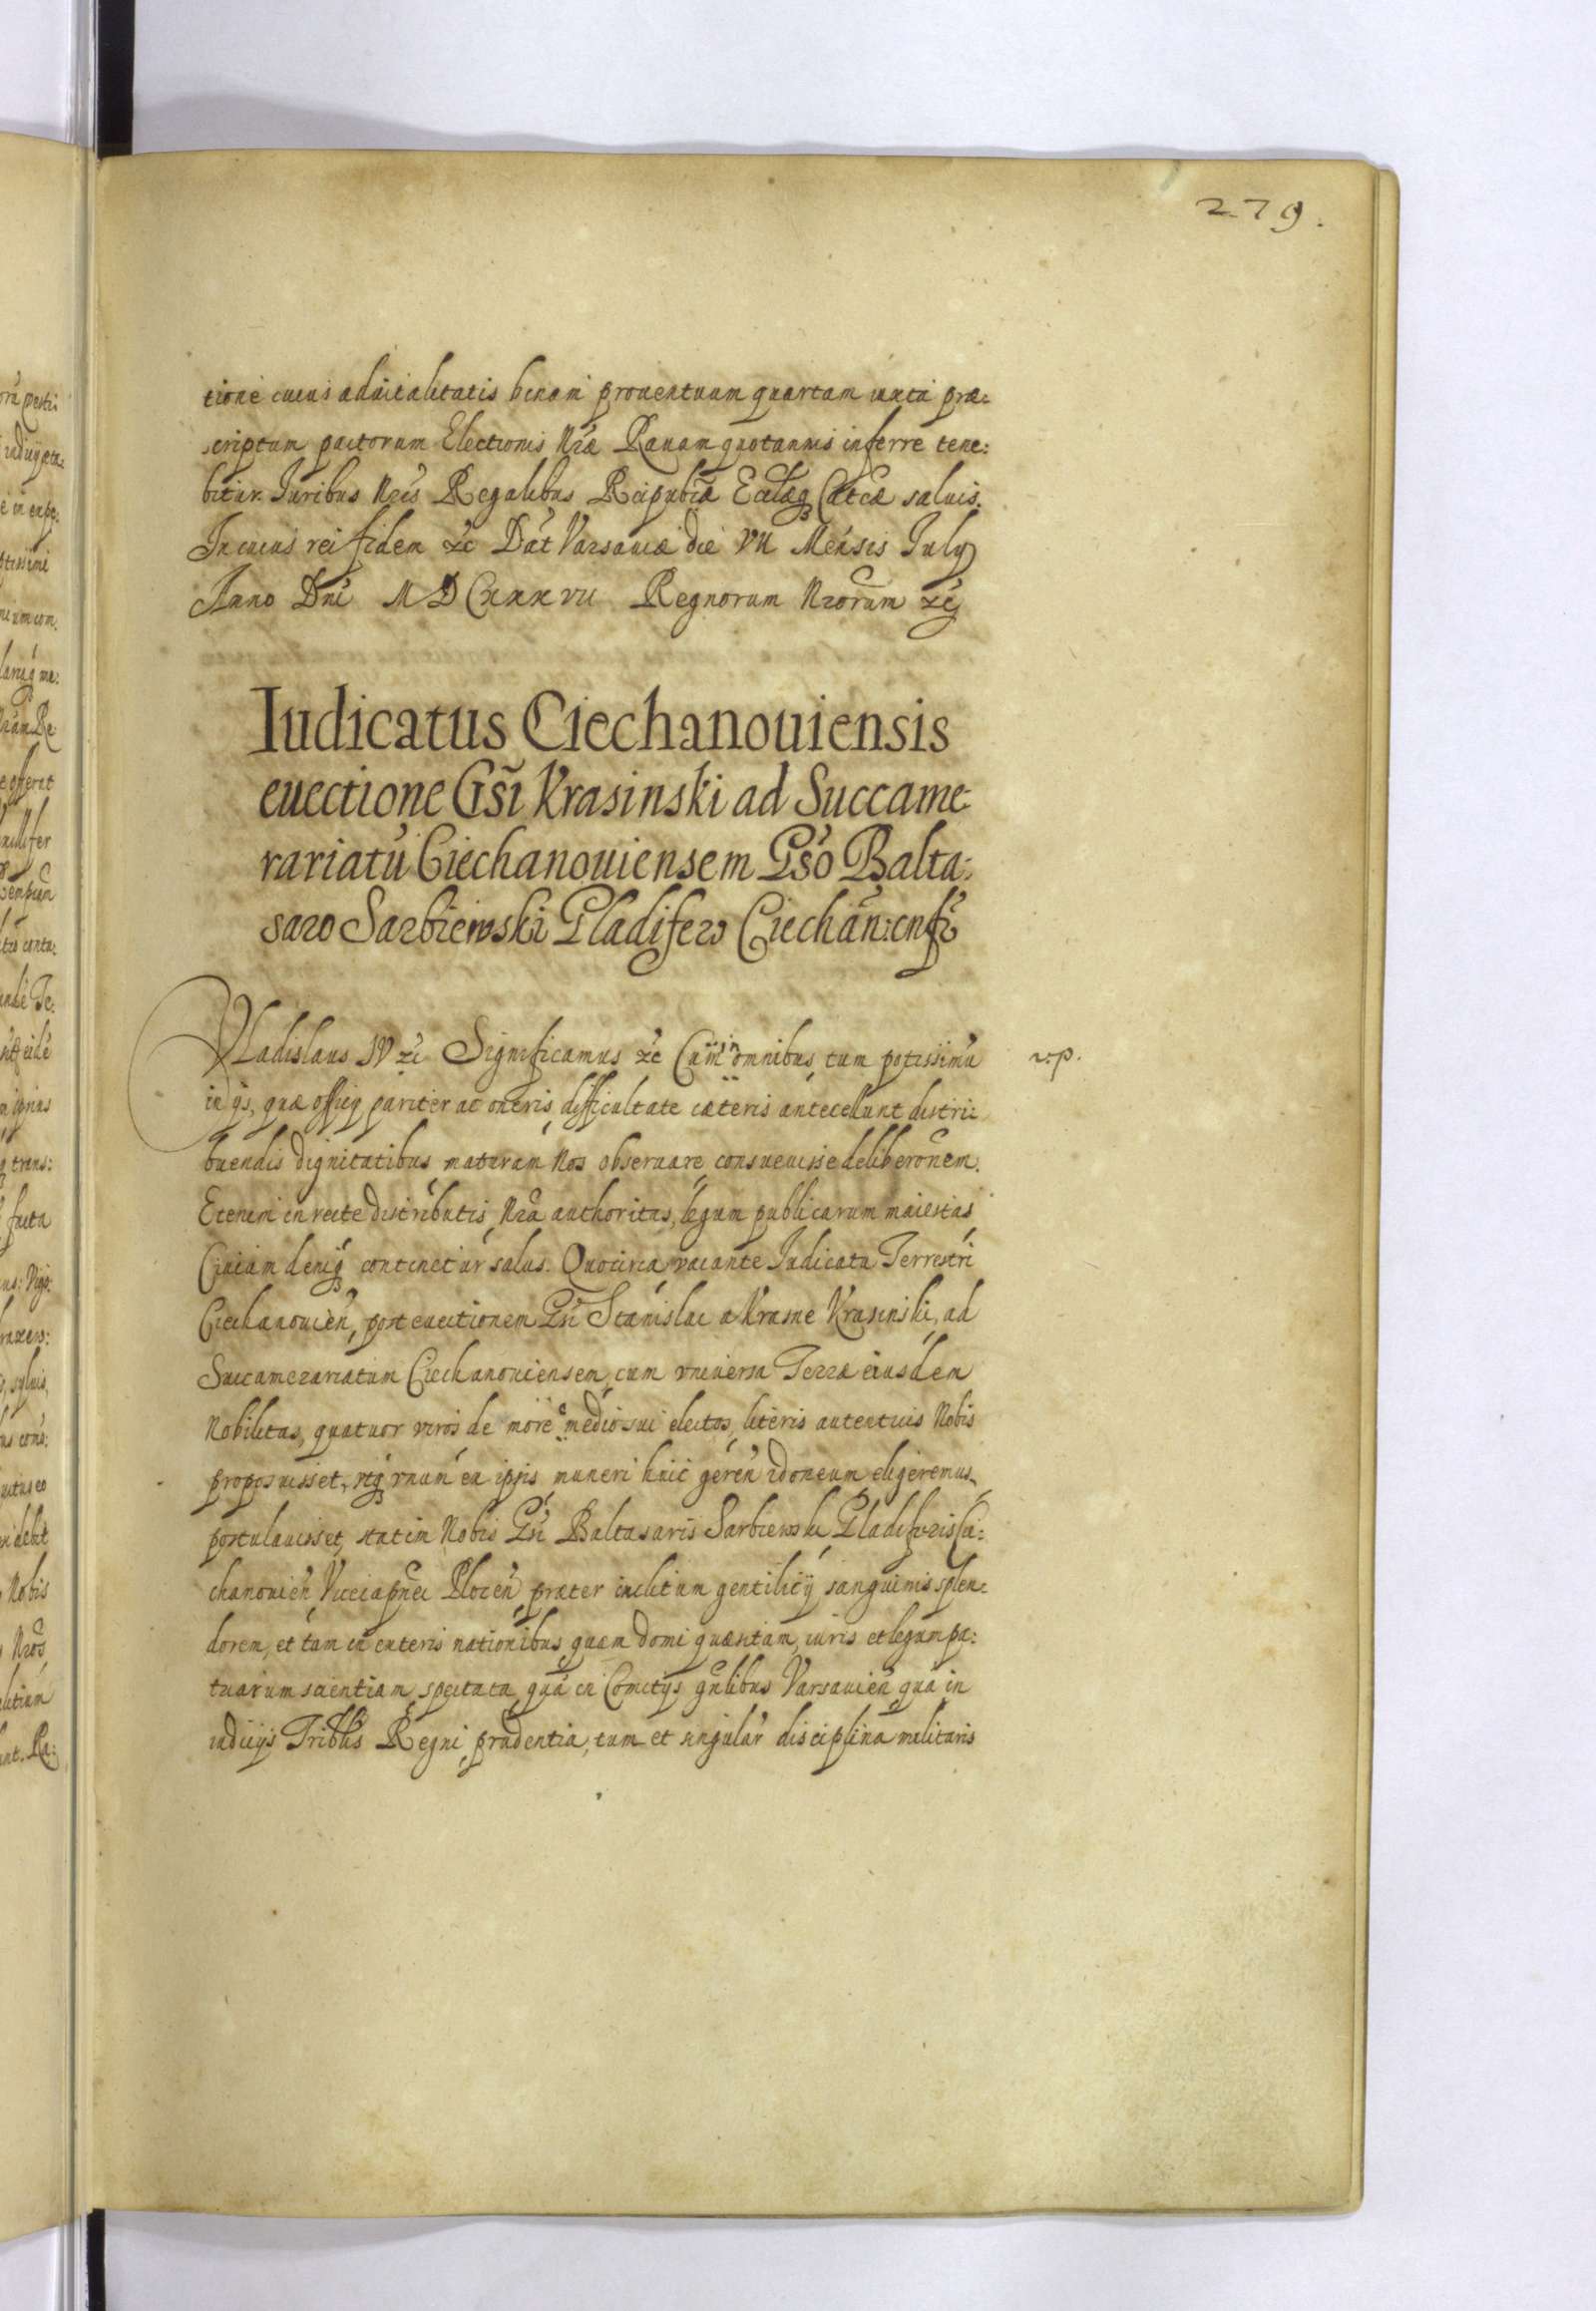 279.
tione cuius aduitalitatis binam prouentuum quartam iuxta præ:
scriptum pactorum Electionis Nræ Rauam quotannis inferre tene:
bitur. Iuribus Nris Regalibus Reipublicæ Ecclæq Catcæ saluis.
In cuius rei fidem &c Dat Varsauiæ die VII Mensis July
Anno Dni MDCXXXVII Regnorum Nrorum &c
Iudicatus Ciechanouiensis
euectione Gsi Krasinski ad Succame:
rariatũ Ciechanouiensem Gso Balta:
saro Sarbiewski Gladifero Ciechan: cnfr
Vladislaus IV &c Significamus &c Cum in omnibus, tum potissimũ
in ijs, quæ officij pariter ac oneris difficultate cæteris antecellunt distri:
buendis dignitatibus maturam Nos obseruare consueuisse deliberõnem.
Etenim in recte distributis Nra authoritas, legum publicarum maiestas
Ciuium deniq continetur salus. Quocirca vacante Iudicatu Terrestri
Ciechanouien, post euectionem Gsi Stanislai a Krasne Krasinski, ad
Succamerariatum Ciechanouiensem, cum vniuersa Terræ eiusdem
Nobilitas, quatuor viros de more e medio sui electos, literis autenticis Nobis
proposuisset, vtq vnum ex ipsis muneri huic geren idoneum eligeremus,
postulauisset, statim Nobis Gsi Baltasaris Sarbiewski Gladiferis Cie:
chanouien Vicecapnei Plocen præter inclitum gentilicij sanguinis splen:
dorem, et tam in exteris nationibus quam domi quæsitam, iuris et legum pa:
tuarum scientiam, spectata qua in Comitys gnlibus Varsauien, qua in
iudicijs Tribblis Regni, prudentia, tum et singular disciplina militaris